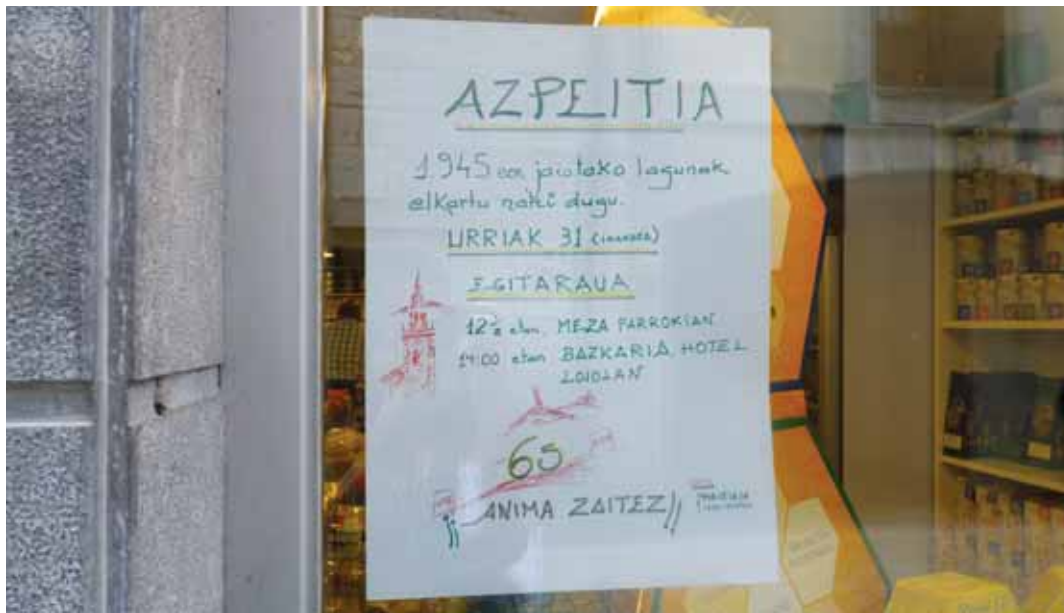 AZPEITIA
1945 ean jaiotako lagunak
elkartu nahi dugu.
URRIAK 31 (igandea)
EGITARAUA
12½ etan MEZA PARROKIAN
14:00 etan BAZKARIA HOTEL
LOIOLAN
65
ANIMA ZAITEZ!!